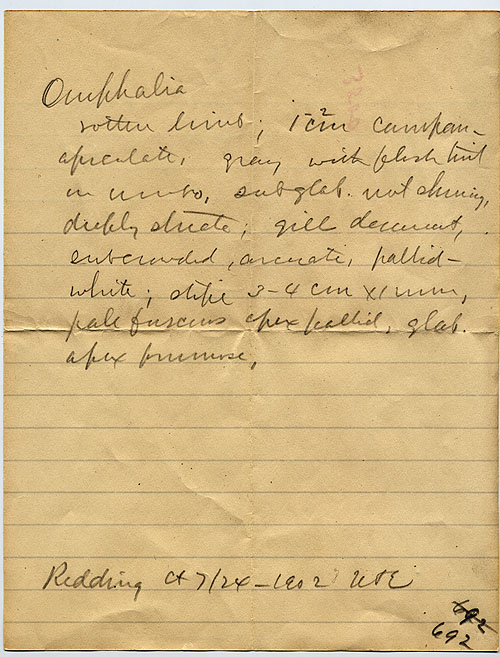 Omphalia
rotten limb; 1 c2m campan-
apiculate, gray with flesh tint
in umbo, subglab. not shining,
deeply striate; gill decurrent,
subcrowded, arcuate, pallid-
white; stipe 3-4 cm x 1 mm,
pale fuscous apex pallid, glab.
apex pruinose,
Redding Ct 7/24-1902
692
692